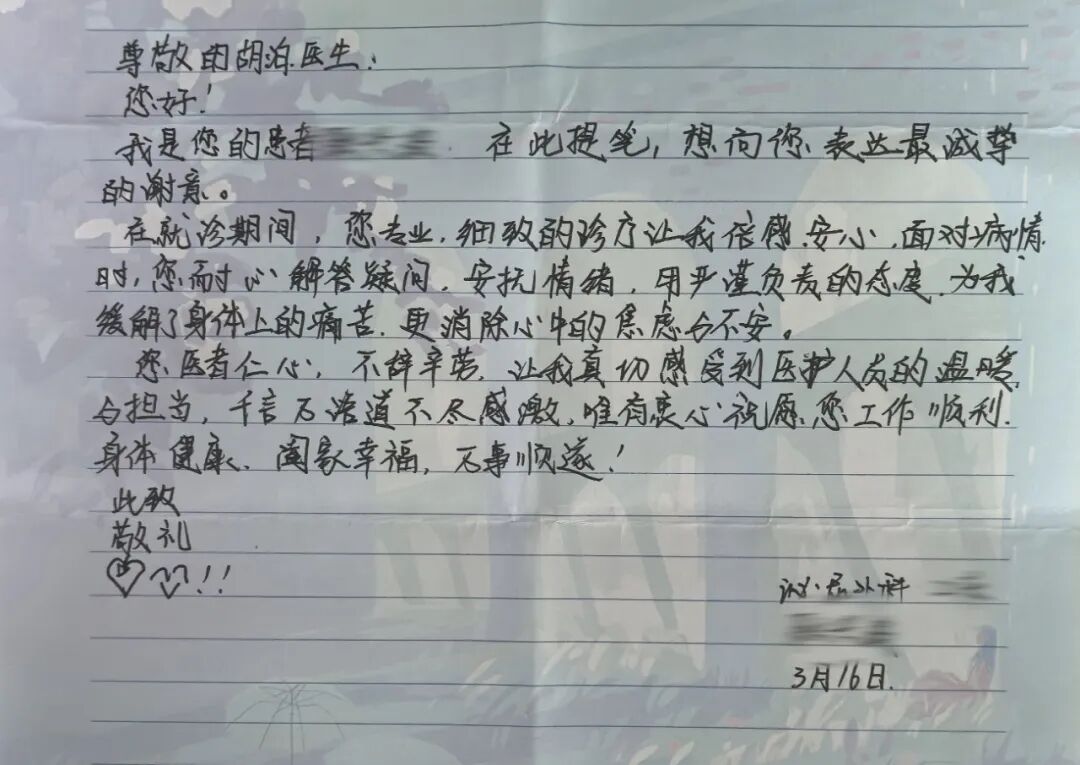 尊敬的胡泊医生：
您好！
我是您的患者 在此提笔，想向您表达最诚挚
的谢意。
在就诊期间，您专业、细致的诊疗让我倍感安心，面对病情
时，您耐心解答疑问，安抚情绪，用严谨负责的态度，为我
缓解了身体上的痛苦，更消除心中的焦虑与不安。
您医者仁心，不辞辛劳，让我真切感受到医护人员的温暖
与担当，千言万语道不尽感激，唯有衷心祝愿您工作顺利，
身体健康、阖家幸福，万事顺遂！
此致
敬礼
！！
泌尿外科
3月16日.